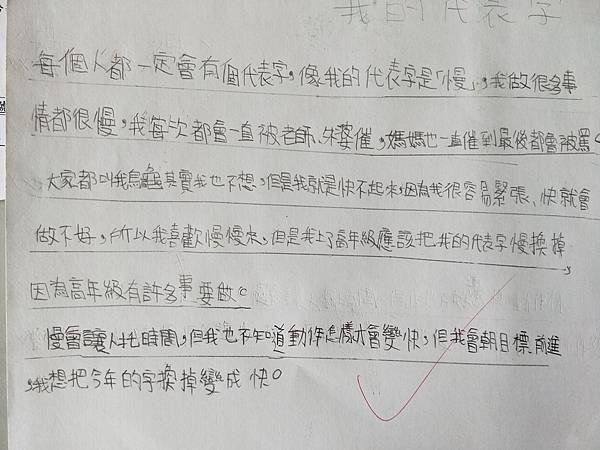 我的代表字
每個人都一定會有個代表字,像我的代表字是「慢」,我做很多事
情都很慢,我每次都會一直被老師、朱婆催,媽媽也一直催到最後都會被罵。
大家都叫我烏龜其實我也不想,但是我就是快不起來,因為我很容易緊張、快就會
做不好,所以我喜歡慢慢來,但是我上了高年級應該把我的代表字慢換掉,
因為高年級有許多事要做。
慢會讓人托時間,但我也不知道動作怎樣才會變快,但我會朝目標前進
,我想把今年的字換掉變成快。